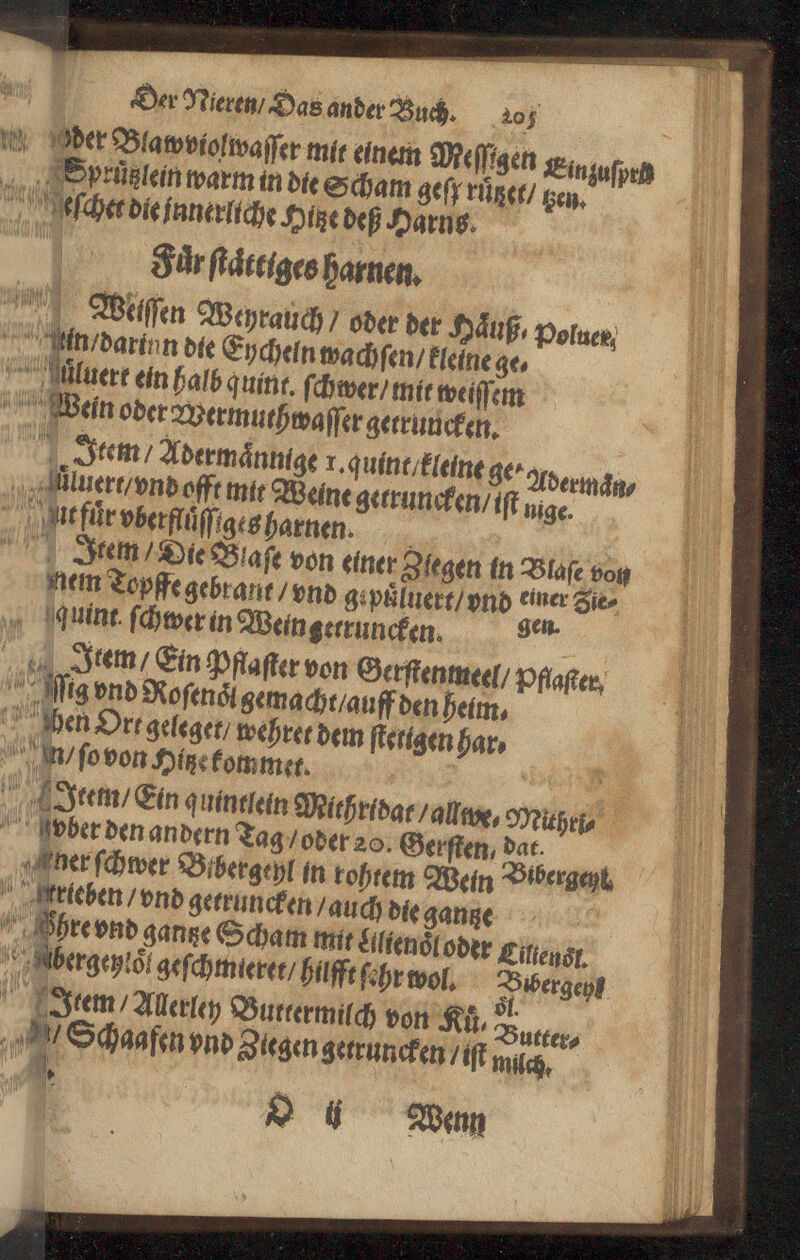 Der Nieren/ Das ander Buch. 205
oder Blawviolwaſſer mit einem Meſſigen
Sprützlein warm in die Scham geſprützet/
leſchet die innerliche Hitze deß Harns.
Einzuſprü
tzen.
Für ſtättiges harnen.
Weiſſen Weyrauch / oder der Häuß⸗
lein/darinn die Eycheln wachſen/ kleine ge⸗
püluert ein halb quint. ſchwer/ mit weiſſem
Wein oder Wermuthwaſſer getruncken.
Poluer,
Item / Adermännige 1. quint/kleine ge⸗
püluert/vnd offt mit Weine getruncken/ iſt
gut für vberflüſſiges harnen.
Adermän⸗
nige.
Item / Die Blaſe von einer Ziegen in
einem Topffe gebrant / vnd gepüluert/ vnd
quint. ſchwer in Wein getruncken.
Blaſe von
einer Zie⸗
gen.
Item / Ein Pflaſter von Gerſtenmeel/
Eſſig vnd Roſenöl gemacht/auff den heim⸗
lichen Ort geleget/ wehret dem ſtetigen har⸗
nen/ ſo von Hitze kommet.
Pflaſter,
Item/ Ein quintlein Mithridat / allwe⸗
vber den andern Tag / oder 20. Gerſten⸗
körner ſchwer Bibergeyl in rohtem Wein
zertrieben / vnd getruncken / auch die gantze
Röhre vnd gantze Scham mit Lilienöl oder
Bibergeylöl geſchmieret/ hilfft ſehr wol.
Mithri⸗
dat.
Bibergeyl.
Lilienöl.
Bibergeyl
öl.
Item / Allerley Buttermilch von Kü⸗
hen/ Schaafen vnd Ziegen getruncken / iſt
Butter⸗
milch.
O ij Wenn